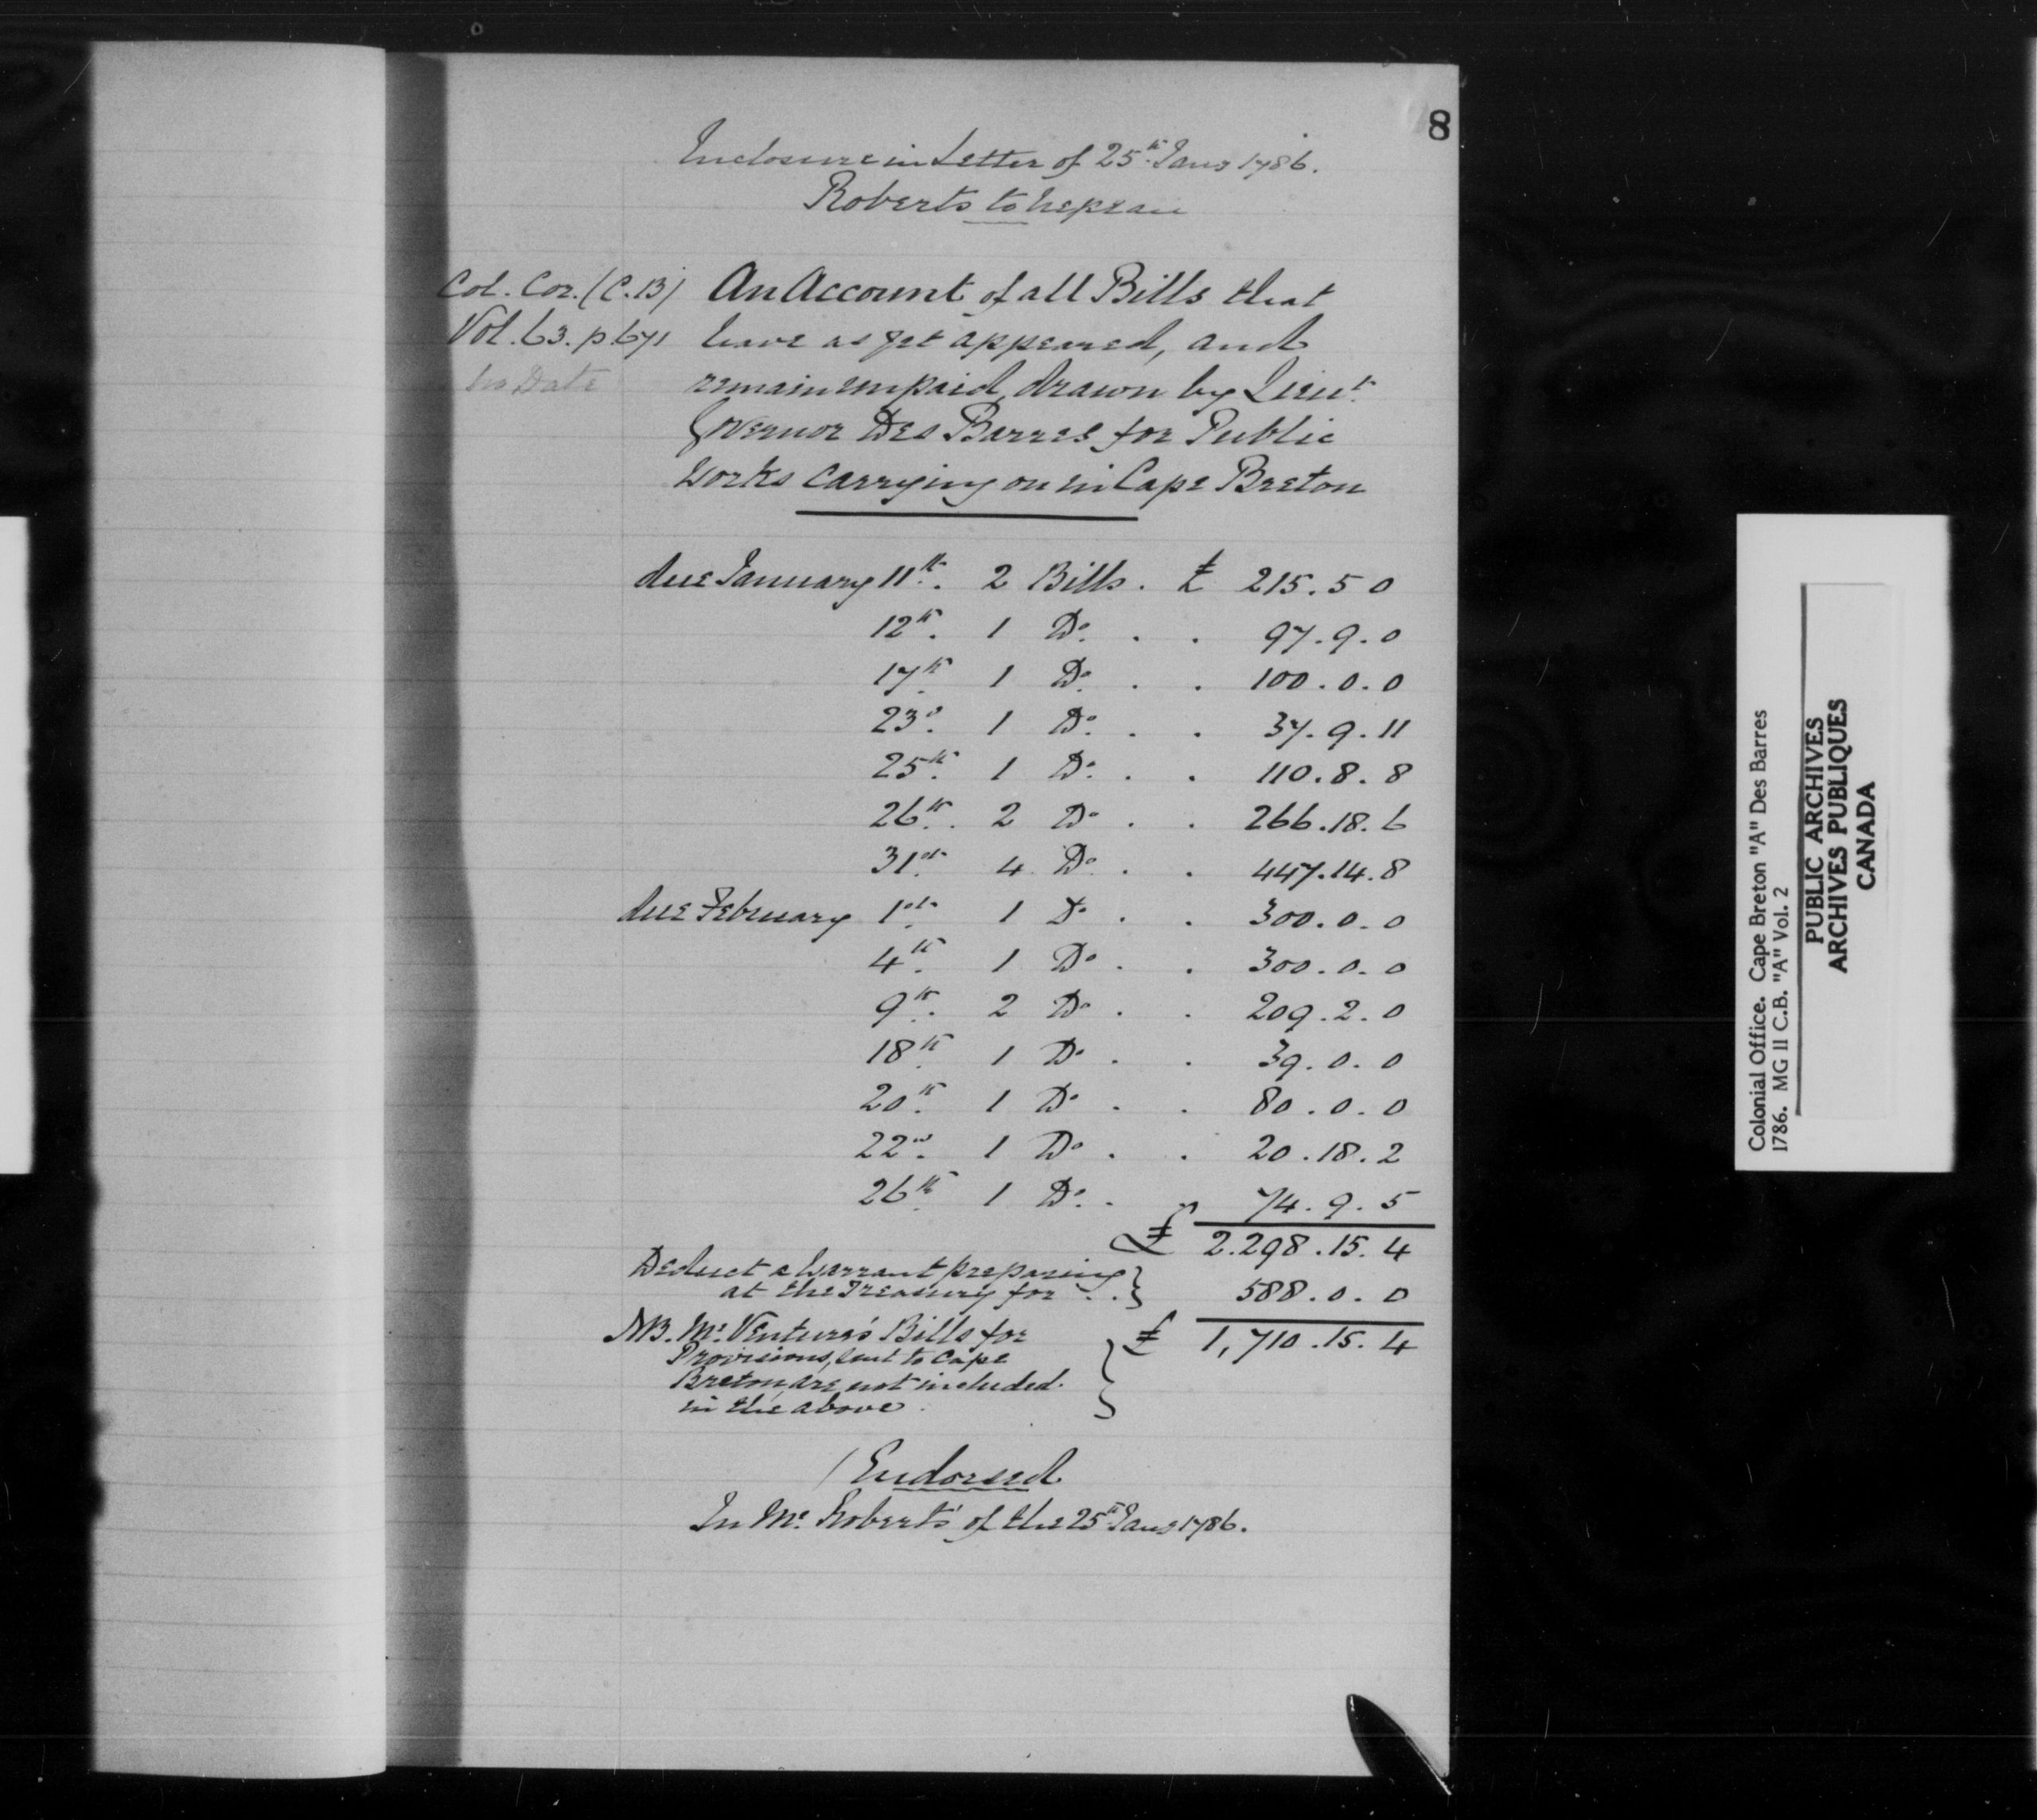 8
Inclosure in Letter of 25th Jany 1786.
Roberts to Nepean
Col. Cor. (C.B)
Vol. 63. p. 671
No Date
An Account of all Bills that
have as yet appeared, and
remain unpaid, drawn by Lieut.
Governor Des Barres for Public
Works carrying on in Cape Breton
due January 11th. 2 Bills . £ 215.5 0
12th. 1 Do. . . 97.9.0
17th. 1 Do. . . 100.0.0
23d. 1 Do. . . 37.9.11
25th. 1 Do. . . 110.8.8
26th. . 2 Do . . 266.18.6
31st. 4 Do. . . 447.14.8
due February 1st. 1 Do . . 300.0.0
4th. 1 Do . . 300.0.0
9th. 2 Do . . 209.2.0
18th. 1 Do . . 39.0.0
20th. 1 Do . . 80.0.0
22d. 1 Do . . 20.18.2
26th. 1 Do. . " 74.9.5
£ 2.298.15.4
Deduct a Warrant preparing
at the Treasury for . . } 588.0.0
NB. Mr. Ventura's Bills for £ 1,710.15.4
Provisions, sent to Cape
Breton, are not included
in the above .
(Endorsed
In Mr. Roberts' of the 25th Jany 1786.
Colonial Office. Cape Breton "A" Des Barres
1786. MG 11 C.B. "A" Vol. 2
PUBLIC ARCHIVES
ARCHIVES PUBLIQUES
CANADA